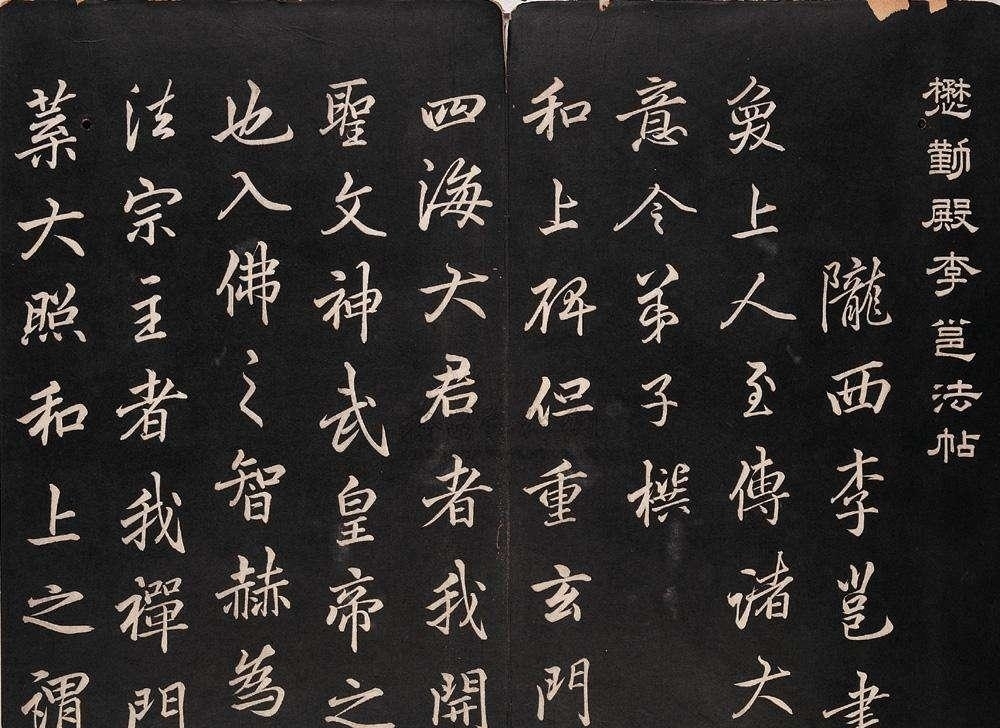 懋勤殿李邕法帖
隴西李邕書
奐上人至傳諸大
意令弟子撰
和上碑但重玄門
四海大君者我開
聖文神武皇帝之
也入佛之智赫為
法宗主者我禪門
葉大照和上之謂